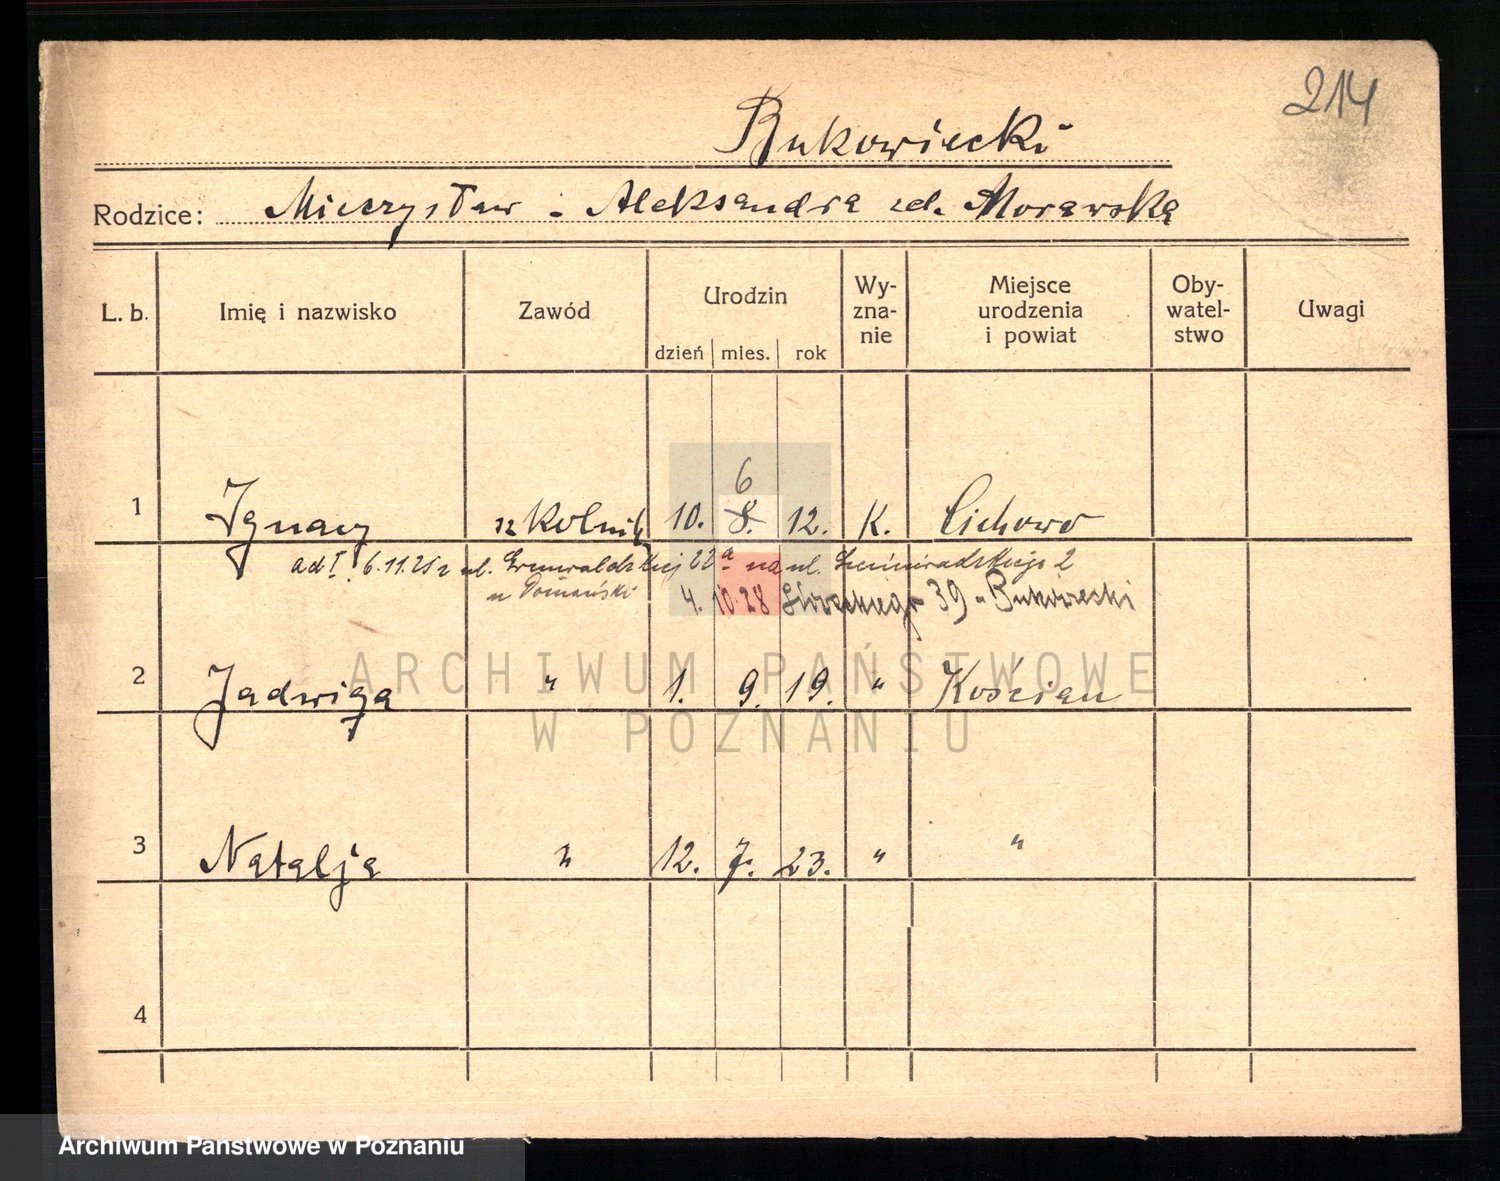 214
Bukowiecki
Rodzice: Mieczysław - Aleksandra zd. Morawska
L. b. Imię i nazwisko Zawód Urodzin dzień mies. rok Wy-zna-nie Miejsce urodzenia i powiat Oby-watel-stwo Uwagi
6
1 Ignacy szkolnik 10. 8. 12. K. Cichowo
ad I. 6.11.25 z ul. Grunwaldzkiej 22a na ul. Siemiradzkiego 2
u Pomański 4. 10.28 39 Bukowiecki
2 Jadwiga " 1. 9. 19. " Kościan
3 Natalja " 12. 7. 23. " "
4
ARCHIWUM PAŃSTWOWE
W POZNANIU
Archiwum Państwowe w Poznaniu